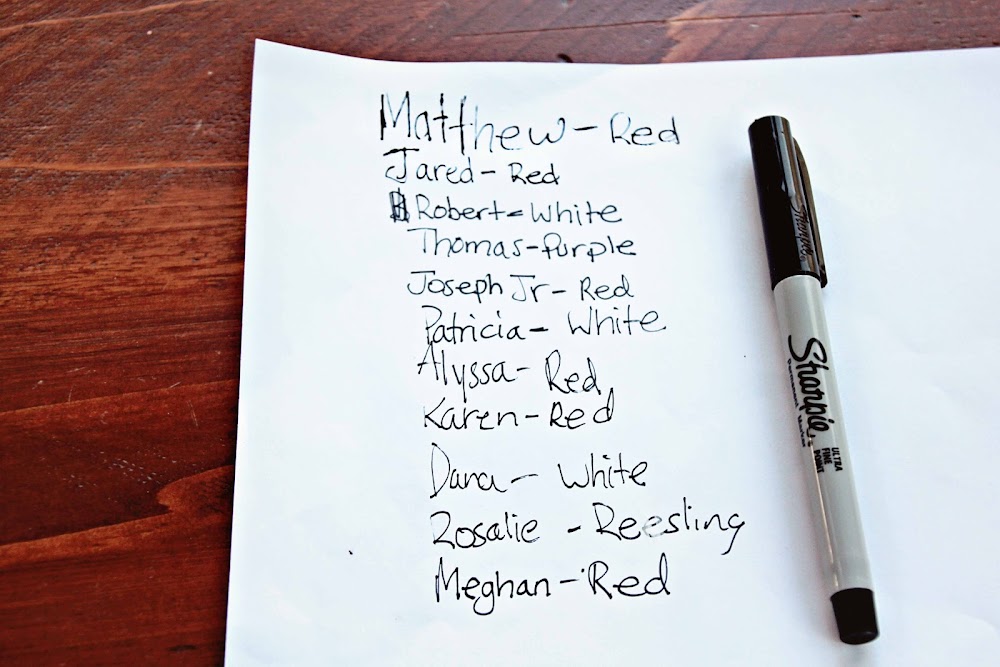 Matthew - Red
Jared - Red
Robert - White
Thomas - Purple
Joseph Jr - Red
Patricia - White
Alyssa - Red
Karen - Red
Dana - White
Rosalie - Reesling
Meghan - Red
Sharpie
Sharpie
Permanent Marker
ULTRA
FINE
POINT